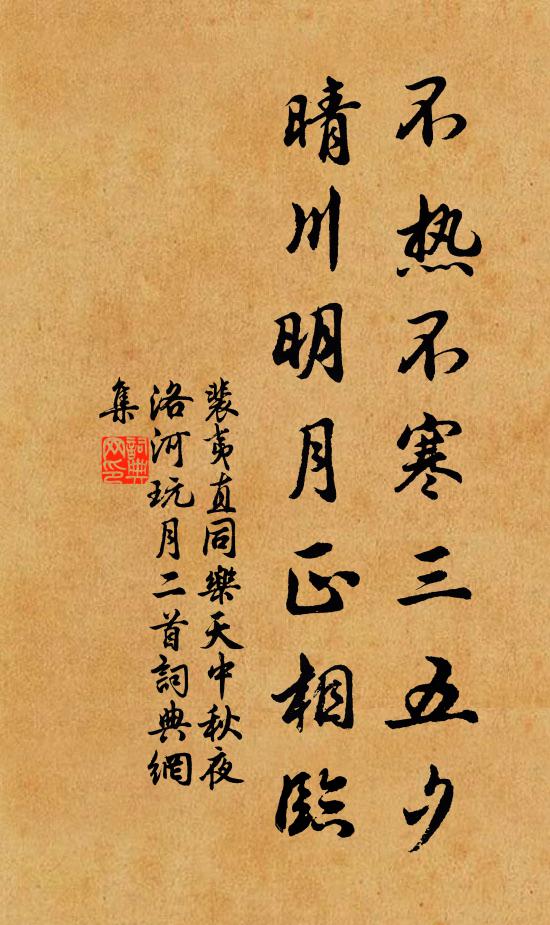 不热不寒三五夕
晴川明月正相臨
裴夷直同樂天中秋夜
洛河玩月二首詞典網
集
詞典
网印